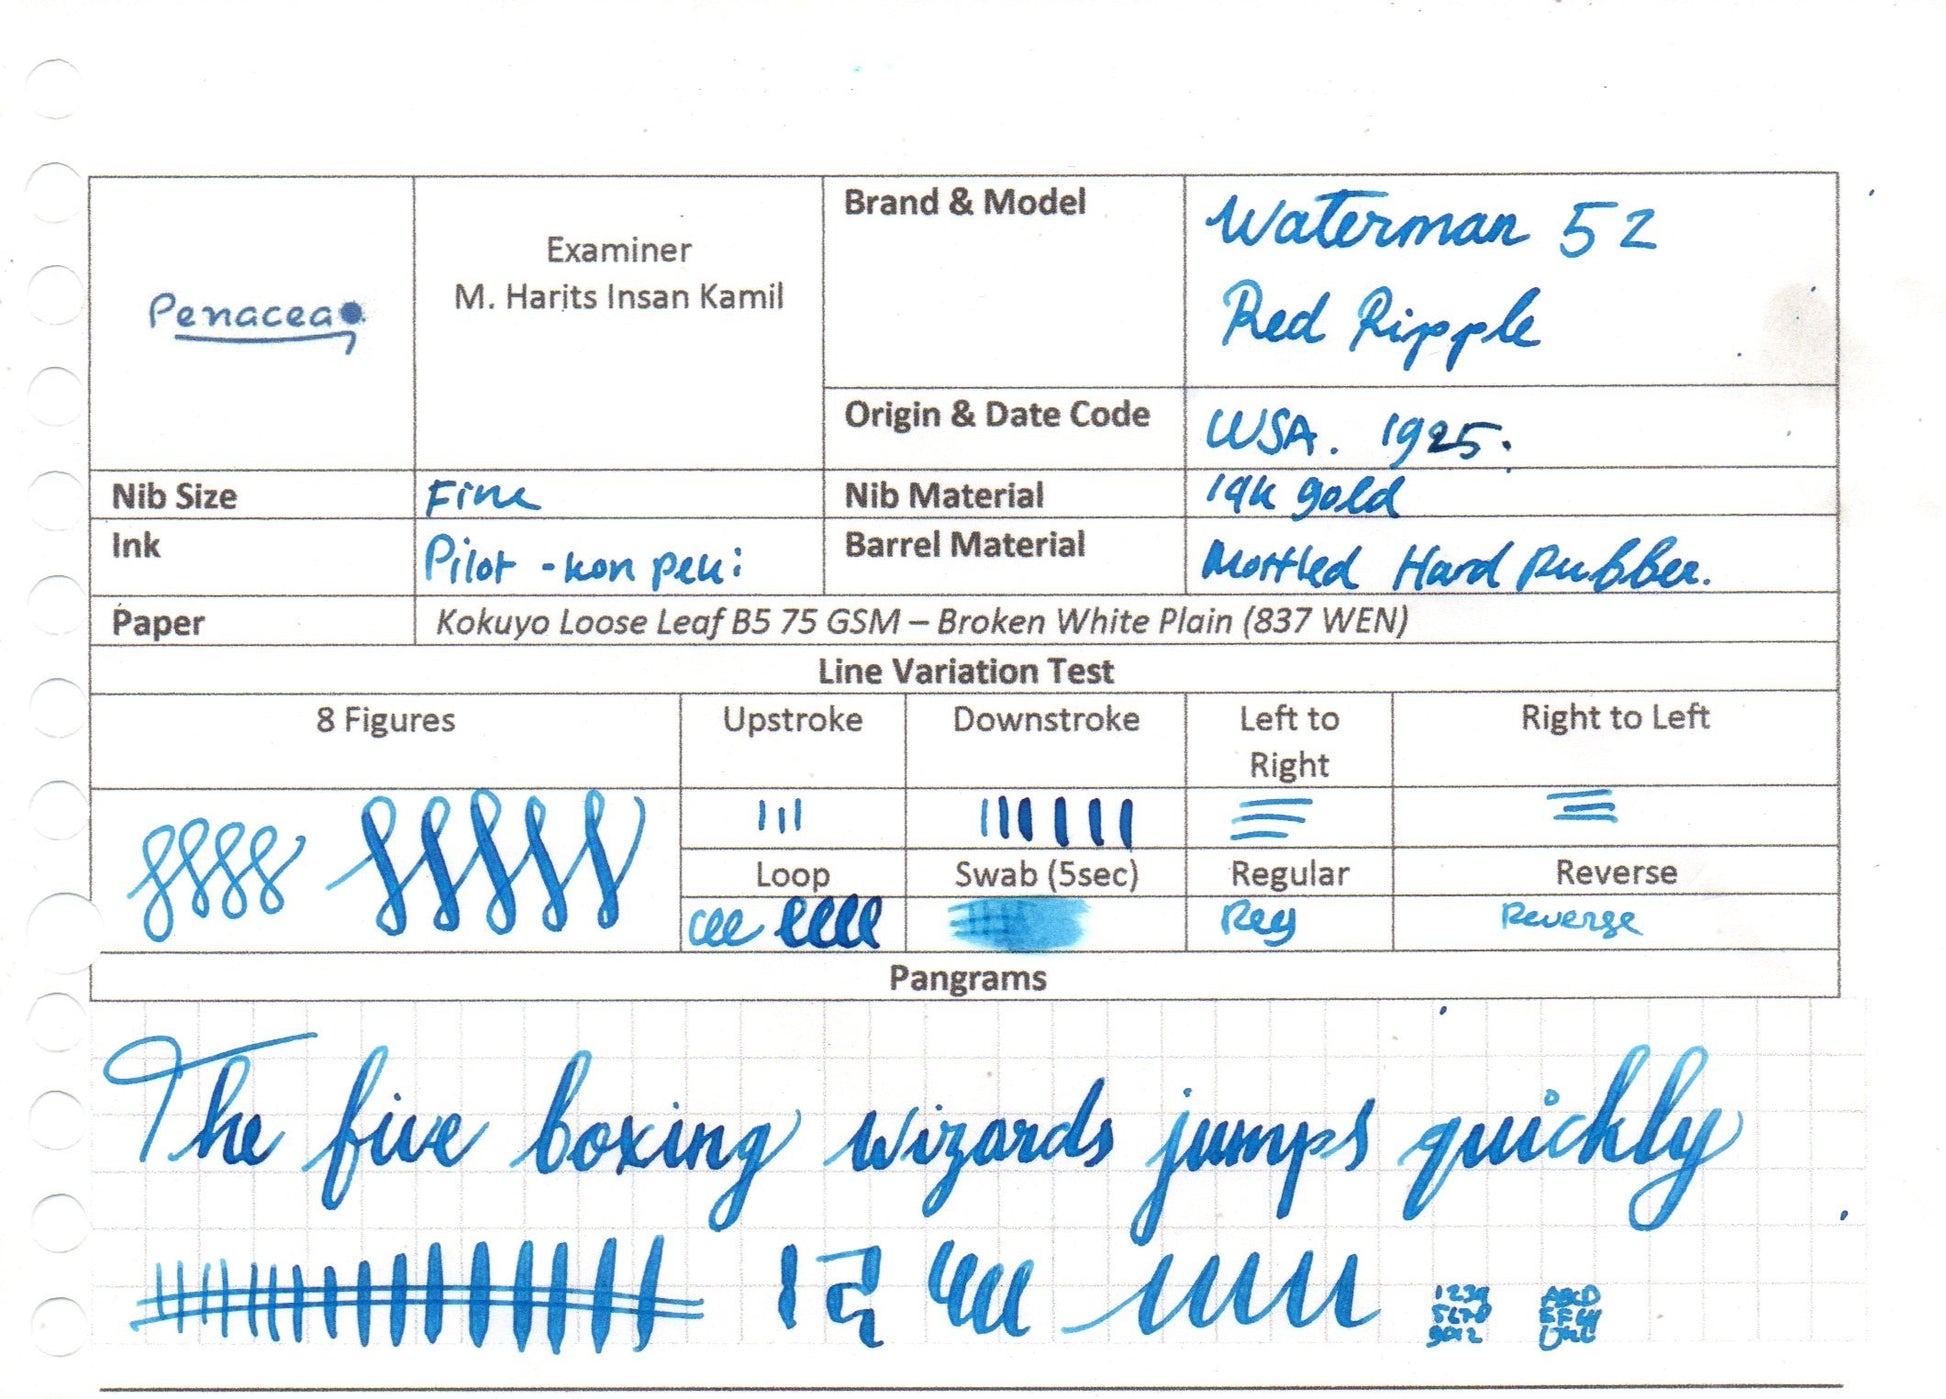 Penacea
Examiner
M. Harits Insan Kamil
Brand & Model
Waterman 52
Red Ripple
Origin & Date Code
USA. 1925.
Nib Size
Fine
Nib Material
14k gold
Ink
Pilot - kon peki
Barrel Material
Mottled Hard Rubber.
Paper
Kokuyo Loose Leaf B5 75 GSM – Broken White Plain (837 WEN)
Line Variation Test
8 Figures
Upstroke
Downstroke
Left to
Right
Right to Left
Loop
Swab (5sec)
Regular
Reverse
Reg
Reverse
Pangrams
The five boxing wizards jumps quickly
1234
5678
9012
ABCD